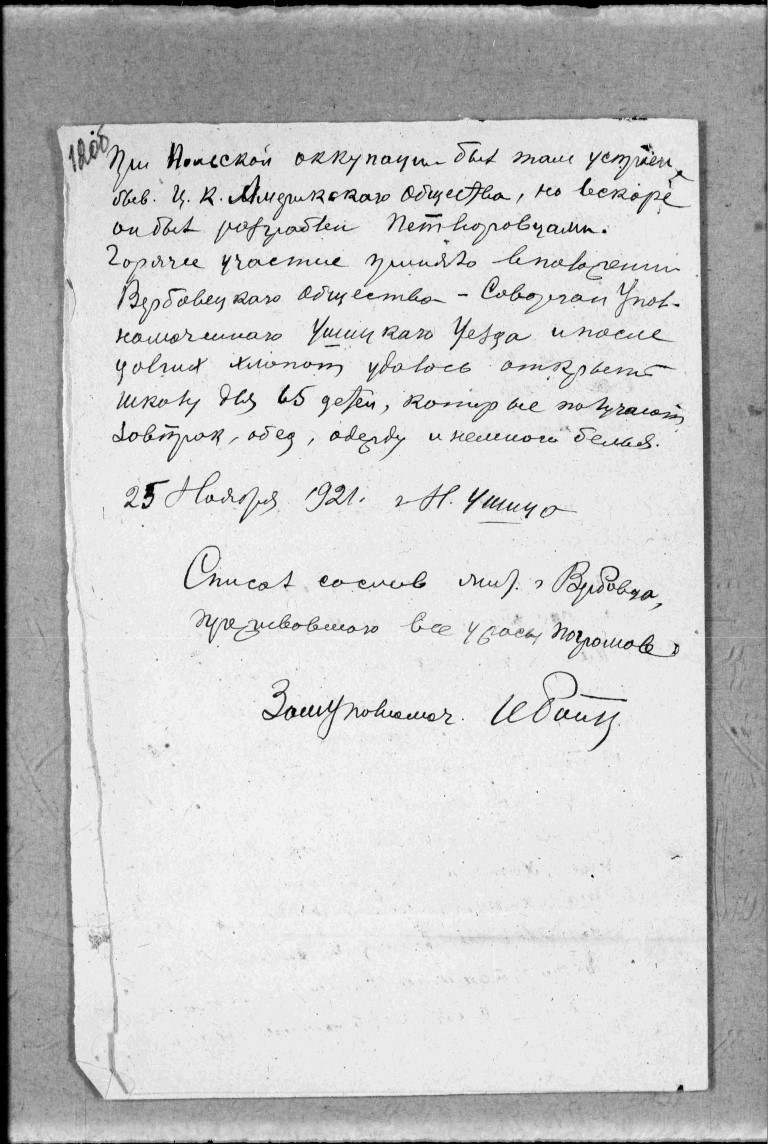 120б
При Польской оккупации был там устроен
быв. Ц. К. Американскаго общества, но вскоре
он был разграблен Петлюровцами.
Горячее участие приняло в положении
Вербовецкаго общества – Совозочай Упол-
номоченнаго Ушицкаго Уезда и после
долгих хлопот удалось открыть
школу для 65 детей, которые получают
завтрак, обед, одежду и немного белья.
25 Ноября 1921. г Н. Ушица
Списал со слов жит. г Вербовца,
пережившаго все ужасы погромов.
Замуполномоч.